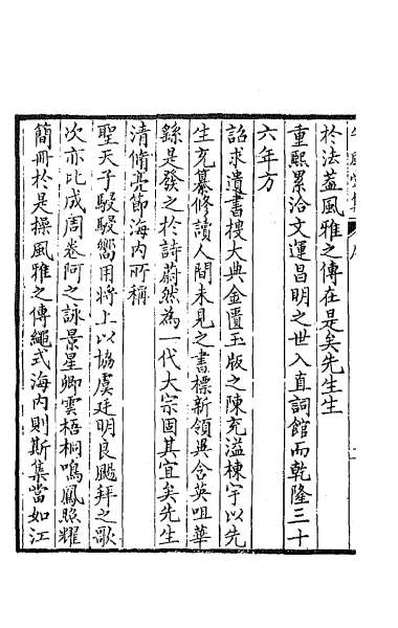 於法蓋風雅之傳在是矣先生生
重熙累洽文運昌明之世入直詞館而乾隆三十
六年方
詔求遺書搜大典金匱玉版之陳充溢棟宇以先
生充纂修讀人間未見之書標新領異含英咀華
繇是發之於詩蔚然為一代大宗固其宜矣先生
清脩亮節海內所稱
聖天子駸駸嚮用將上以協虞廷明良颺拜之歌
次亦比成周卷阿之詠景星卿雲梧桐鳴鳳照耀
簡冊於是操風雅之傳繩式海內則斯集當如江